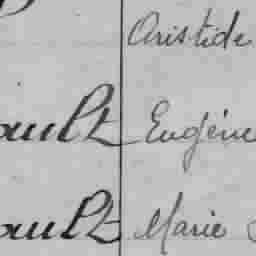 Aristide
ault Eugène
ault Marie